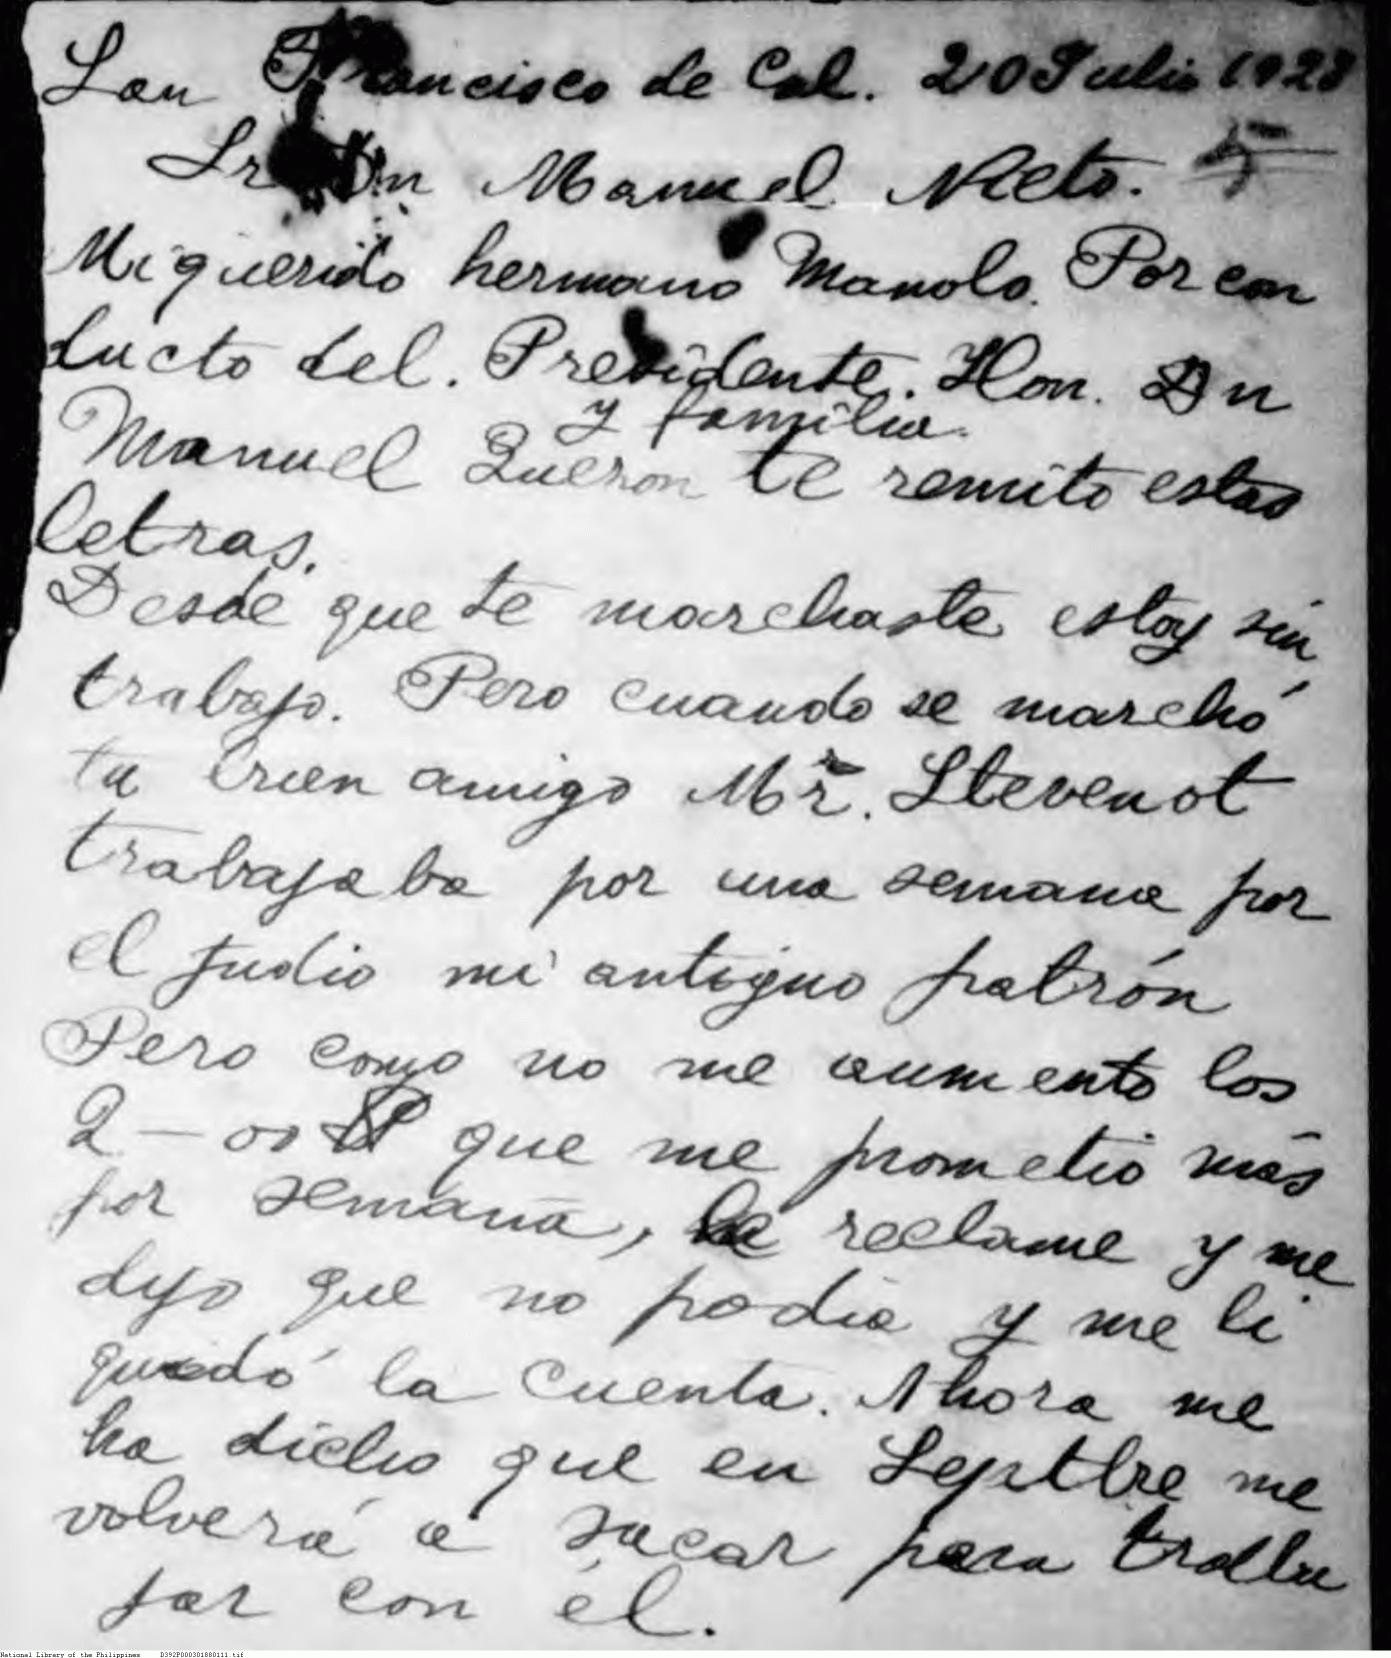 San Francisco de Cal. 20 Julio 1928
Sr Dn Manuel Nieto.
Mi querido hermano Manolo. Por con
ducto del. Presidente. Hon. Dn
y familia.
Manuel Quezon te remito estas
letras.
Desde que te marchaste estoy sin
trabajo. Pero cuando se marchó
tu buen amigo Mr. Stevenot
trabajaba por una semana por
el judio mi antiguo patrón
Pero como no me aumento los
2-00 que me prometio más
por semana, le reclame y me
dijo que no podia y me li
quedó la cuenta. Ahora me
ha dicho que en Septbre me
volverá a sacar para traba
jar con él.
National Library of the Philippines D392P000301880111.tif